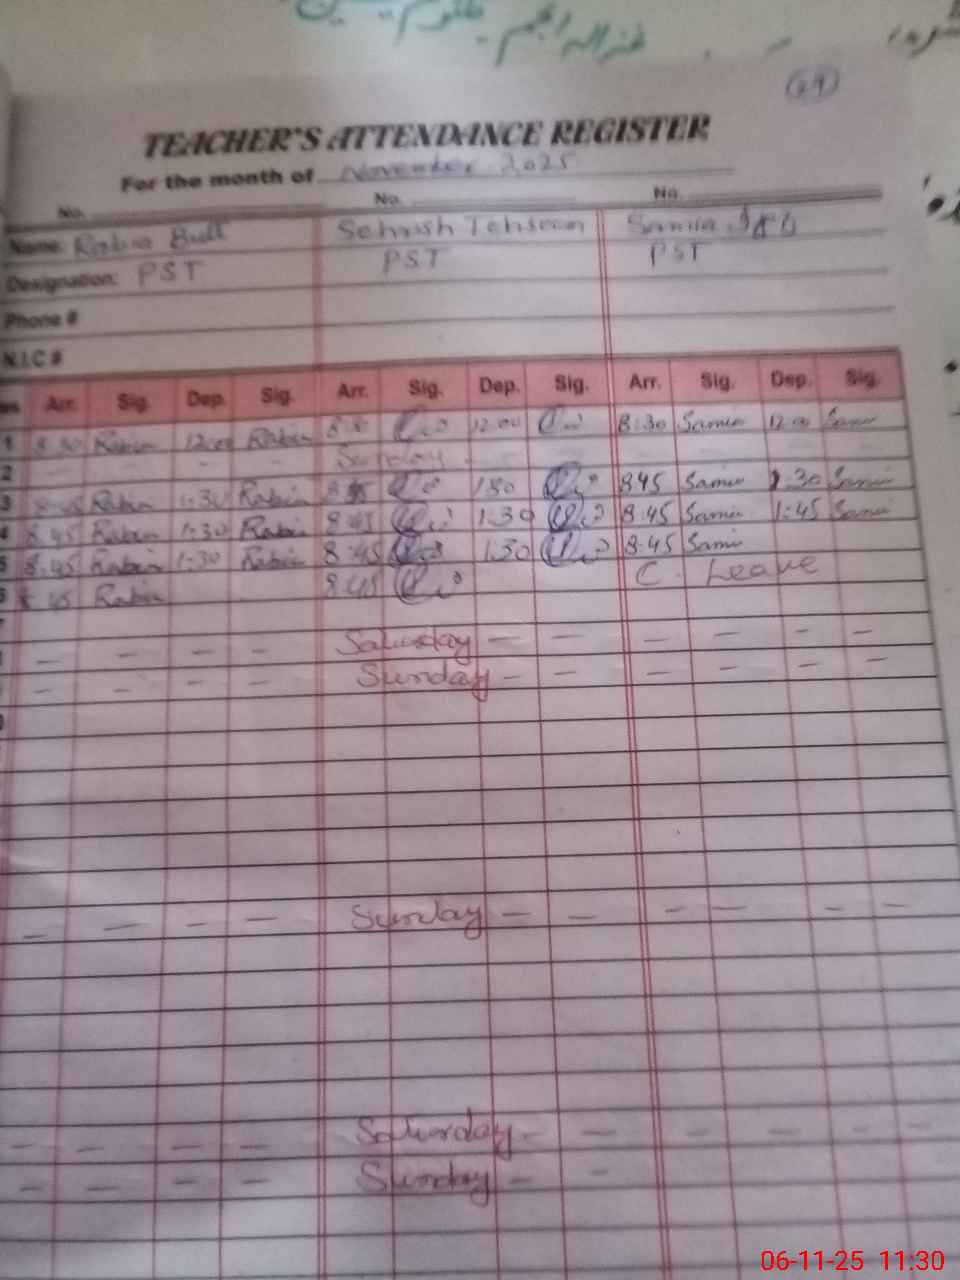 29
TEACHER'S ATTENDANCE REGISTER
For the month of November 2025
No. No. No.
Name: Rabia Butt Sehrish Tehseen Samia
Designation: PST PST PST
Phone #
N.I.C #
Arr. Sig. Dep. Sig. Arr. Sig. Dep. Sig. Arr. Sig. Dep. Sig.
1 8:30 Rabia 12:00 Rabia 12:00 8:30 Samia 12:00 Samia
2 - - - - Sunday
3 8:45 Rabia 1:30 Rabia 1:30 845 Samia 1:30 Samia
4 8:45 Rabia 1:30 Rabia 8:45 1:30 8:45 Samia 1:45 Samia
5 8:45 Rabia 1:30 Rabia 8:45 1:30 8:45 Samia
6 8:45 Rabia 8:45 C. Leave
- - - - Saturday - - - - - -
- - - - Sunday - - - - - -
- - - - Sunday - - - - - -
- - - - Saturday - - - - - -
- - - - Sunday - -
06-11-25 11:30